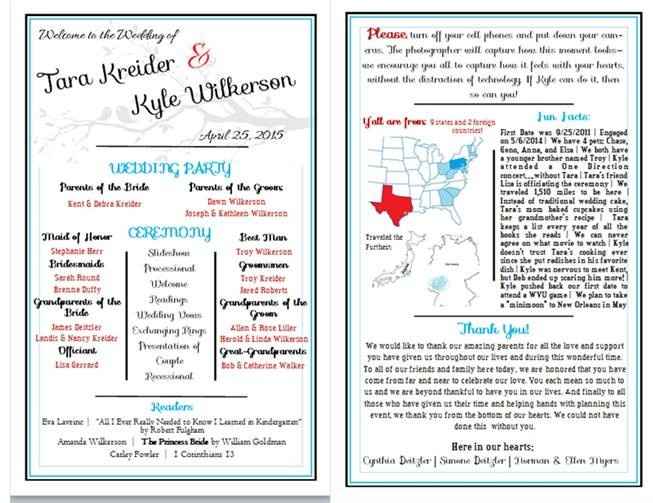 Welcome to the Wedding of
Tara Kreider &
Kyle Wilkerson
April 25, 2015
WEDDING PARTY
Parents of the Bride
Kent & Debra Kreider
Parents of the Groom
Dawn Wilkerson
Joseph & Kathleen Wilkerson
Maid of Honor
Stephanie Herr
Bridesmaids
Sarah Round
Brenne Duffy
Grandparents of the
Bride
James Deitzler
Landis & Nancy Kreider
Officiant
Lisa Gerrard
CEREMONY
Slideshow
Processional
Welcome
Readings
Wedding Vows
Exchanging Rings
Presentation of
Couple
Recessional
Best Man
Troy Wilkerson
Groomsmen
Troy Kreider
Jared Roberts
Grandparents of the
Groom
Allen & Rose Liller
Harold & Linda Wilkerson
Great-Grandparents
Bob & Catherine Walker
Readers
Eva Lavrinc | "All I Ever Really Needed to Know I Learned in Kindergarten"
by Robert Fulgham
Amanda Wilkerson | The Princess Bride by William Goldman
Carley Fowler | 1 Corinthians 13
Please, turn off your cell phones and put down your cam-
eras. The photographer will capture how this moment looks—
we encourage you all to capture how it feels with your hearts,
without the distraction of technology. If Kyle can do it, then
so can you!
Y'all are from: 9 states and 2 foreign
countries!
Traveled the
Furthest:
Fun Facts:
First Date was 9/25/2011 | Engaged
on 5/6/2014 | We have 4 pets: Chase,
Gena, Anna, and Elsa | We both have
a younger brother named Troy | Kyle
attended a One Direction
concert...without Tara | Tara's friend
Lisa is officiating the ceremony | We
traveled 1,510 miles to be here |
Instead of traditional wedding cake,
Tara's mom baked cupcakes using
her grandmother's recipe | Tara
keeps a list every year of all the
books she reads | We can never
agree on what movie to watch | Kyle
doesn't trust Tara's cooking ever
since she put redishes in his favorite
dish | Kyle was nervous to meet Kent,
but Deb ended up scaring him more! |
Kyle pushed back our first date to
attend a WVU game | We plan to take
a "minimoon" to New Orleans in May
Thank You!
We would like to thank our amazing parents for all the love and support
you have given us throughout our lives and during this wonderful time.
To all of our friends and family here today, we are honored that you have
come from far and near to celebrate our love. You each mean so much to
us and we are beyond thankful to have you in our lives. And finally to all
those who have given us their time and helping hands with planning this
event, we thank you from the bottom of our hearts. We could not have
done this without you.
Here in our hearts:
Cynthia Deitzler | Simone Deitzler | Herman & Ellen Myers